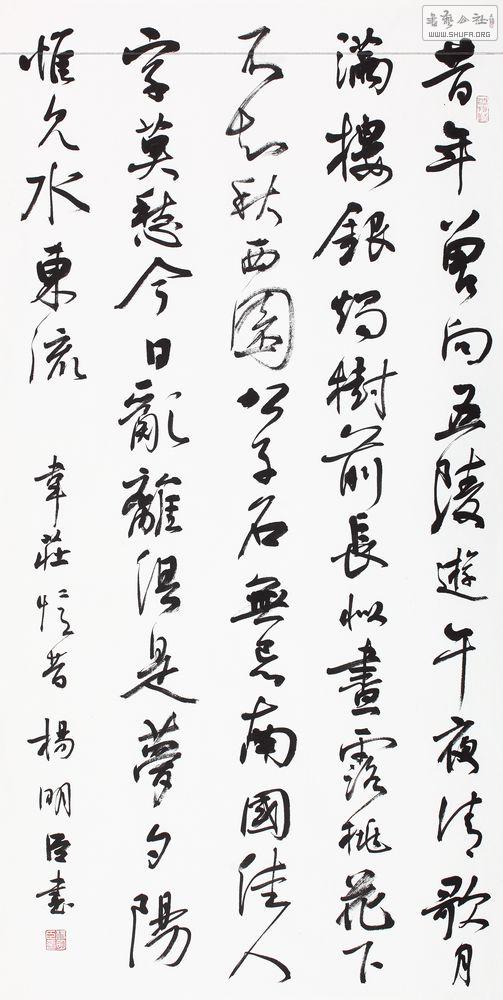 昔年曾向五陵遊午夜清歌月
滿樓銀燭樹前長似晝露桃花下
不知秋西園公子名無忌南國佳人
字莫愁今日亂離俱是夢夕陽
惟見水東流
韋莊憶昔 楊明臣書
书艺公社
WWW.SHUFA.ORG